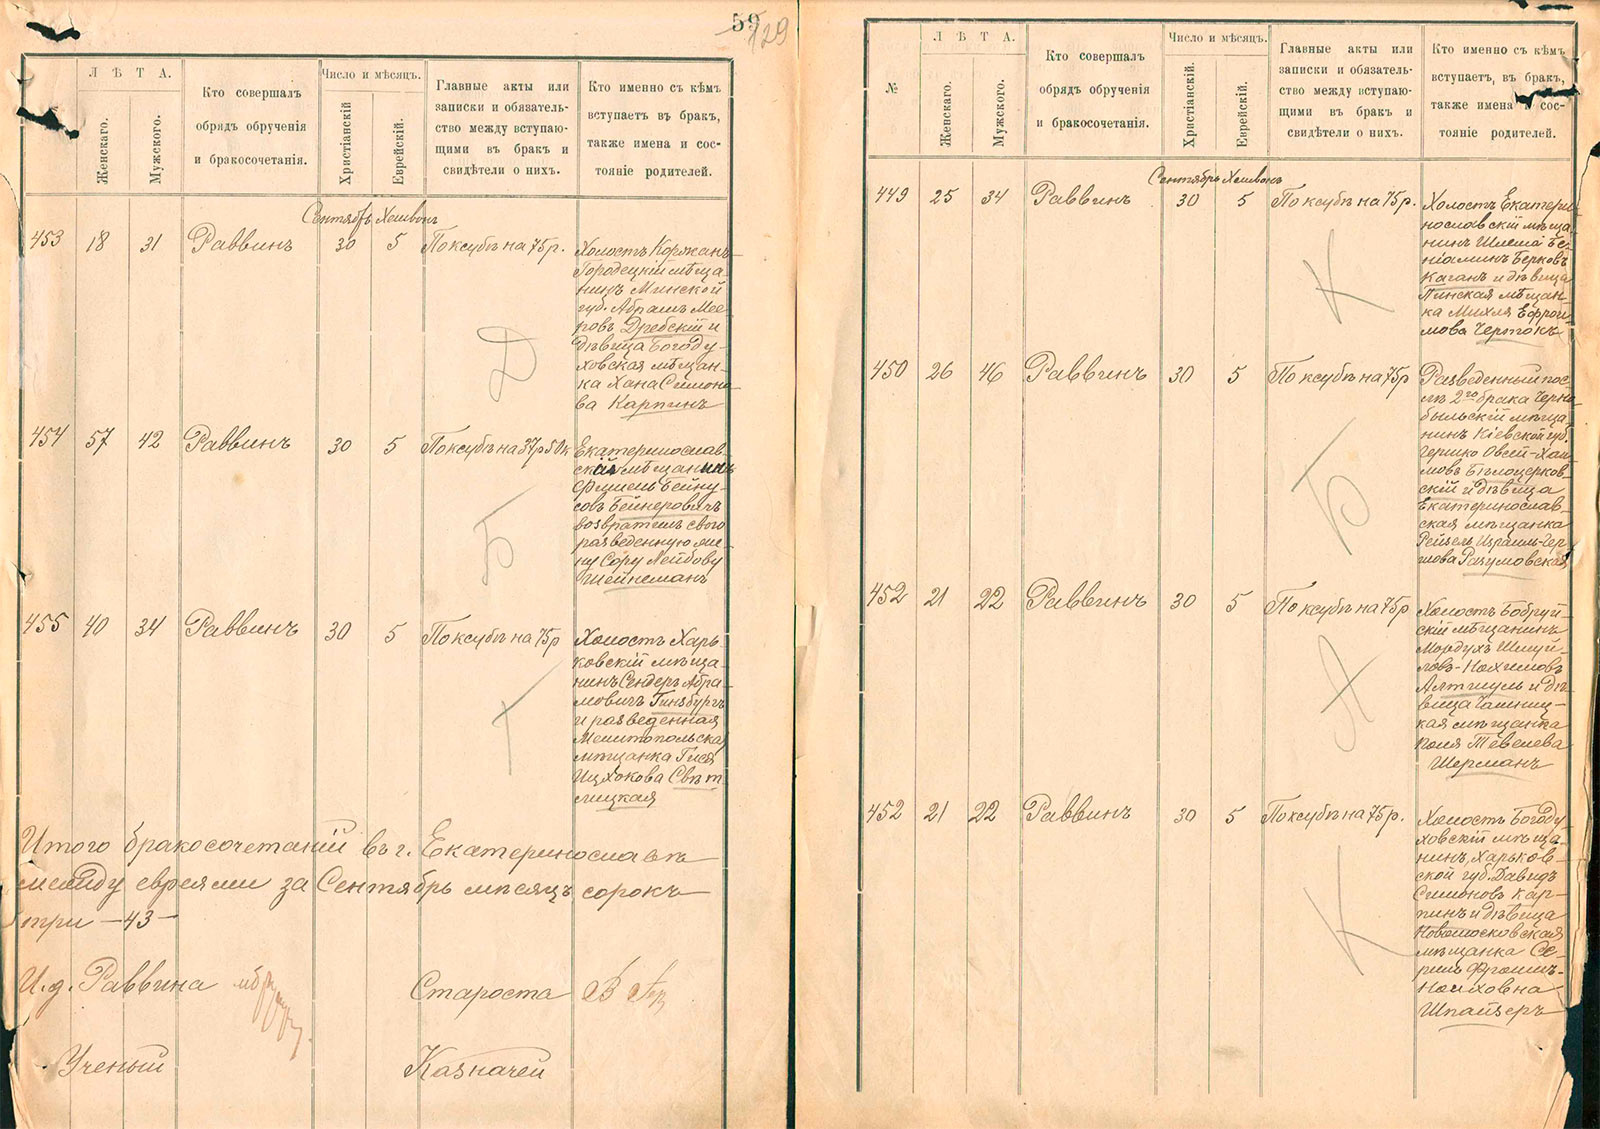 59
129
ЛѢТА.
Женскаго.
Мужского.
Кто совершалъ
обрядъ обрученія
и бракосочетанія.
Число и мѣсяцъ.
Христіанскій
Еврейскій.
Главные акты или
записки и обязатель-
ство между вступаю-
щими въ бракъ и
свидѣтели о нихъ.
Кто именно съ кѣмъ
вступаетъ въ бракъ,
также имена и сос-
тояніе родителей.
Сентябрь Хешвонъ
453 18 31 Раввинъ 30 5 По ксубѣ на 75 р.
Холостъ Коржанъ-
Городецкій мѣща-
нинъ Минской
губ. Абрамъ Мее-
ровъ Дребскій и
дѣвица Богоду-
ховская мѣщан-
ка Хана Симоно-
ва Карпинъ
Д
454 57 42 Раввинъ 30 5 По ксубѣ на 37 р 50 к
Екатеринослав-
скій мѣщанинъ
Фишель Бейну-
совъ Бейнеровичъ
возвратилъ свого
разведенную же-
ну Сору Лейбову
Шейнеманъ
Б
455 40 34 Раввинъ 30 5 По ксубѣ на 75 р
Холостъ Харь-
ковскій мѣща-
нинъ Сендеръ Абра-
мовичъ Гинзбургъ
и разведенная
Мелитопольская
мѣщанка Гися
Ицхокова Свѣт-
лицкая
Г
Итого бракосочетаній въ г. Екатеринославѣ
между евреями за Сентябрь мѣсяцъ сорокъ
три —43—
И. д. Раввина
Староста
Ученый
Казначей
№
ЛѢТА.
Женскаго.
Мужского.
Кто совершалъ
обрядъ обрученія
и бракосочетанія.
Число и мѣсяцъ.
Христіанскій.
Еврейскій.
Главные акты или
записки и обязатель-
ство между вступаю-
щими въ бракъ и
свидѣтели о нихъ.
Кто именно съ кѣмъ
вступаетъ, въ бракъ,
также имена и сос-
тояніе родителей.
Сентябрь Хешвонъ
449 25 34 Раввинъ 30 5 По ксубѣ на 75 р.
Холостъ Екатери-
нославскій мѣща-
нинъ Шлема Бе-
ніаминъ Берковъ
Каганъ и дѣвица
Пинская мѣщан-
ка Михля Ефрои-
мова Чертокъ
К
450 26 46 Раввинъ 30 5 По ксубѣ на 75 р
Разведенный пос-
лѣ 2го брака Черно-
быльскій мѣща-
нинъ Кіевской губ.
Герцко Овсей-Хаи-
мовъ Бѣлоцерков-
скій и дѣвица
Екатеринослав-
ская мѣщанка
Рейзель Израиль-Гер-
шова Разумовская
Б
452 21 22 Раввинъ 30 5 По ксубѣ на 75 р
Холостъ Бобруй-
скій мѣщанинъ
Мордухъ Шмуй-
ловъ-Нохимовъ
Алтшуль и дѣ-
вица
кая мѣщанка
Тевелева
Шерманъ
А
452 21 22 Раввинъ 30 5 По ксубѣ на 75 р.
Холостъ Богоду-
ховскій мѣща-
нинъ, Харьков-
ской губ. Давидъ
Симоновъ Кар-
пинъ и дѣвица
Новомосковская
мѣщанка

Шпайзеръ
К